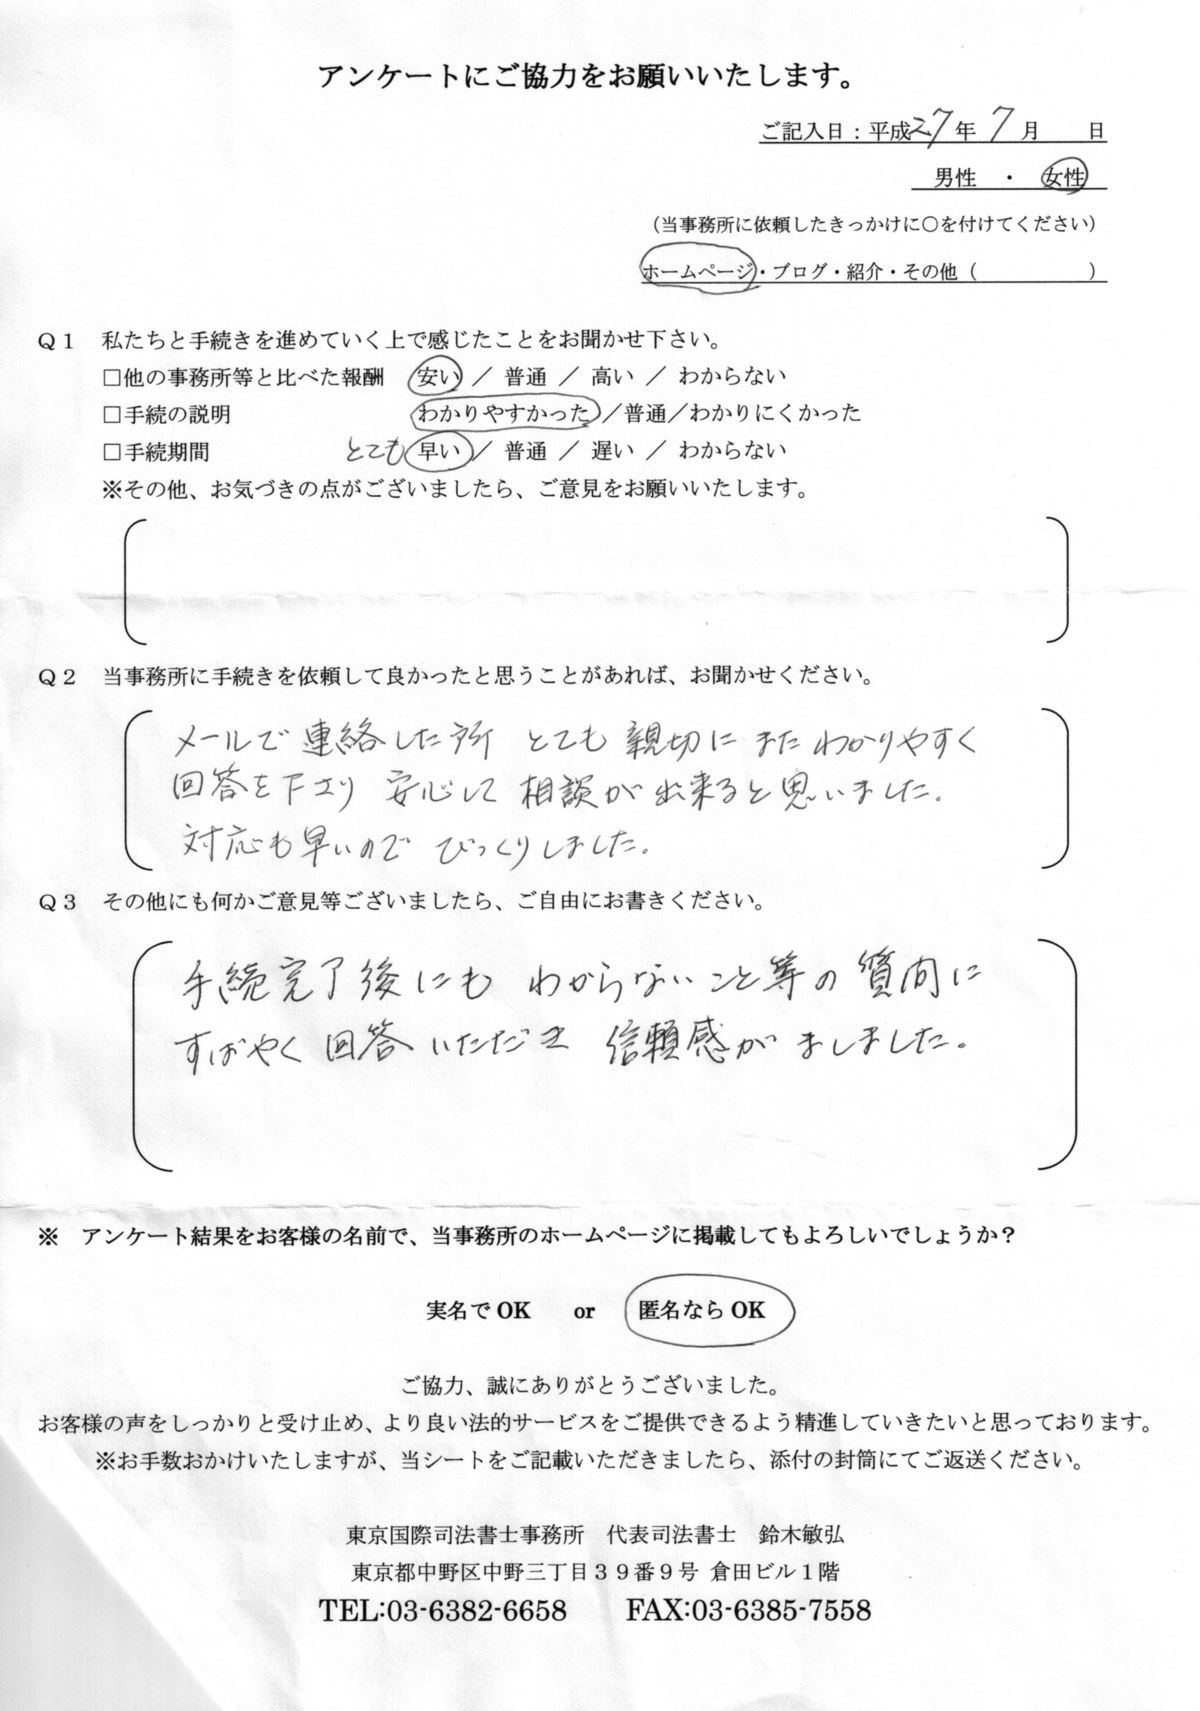 アンケートにご協力をお願いいたします。
ご記入日：平成27年 7月　　日
男性　・　女性
（当事務所に依頼したきっかけに〇を付けてください）
ホームページ・ブログ・紹介・その他（　　　　　）
Ｑ１　私たちと手続きを進めていく上で感じたことをお聞かせ下さい。
□他の事務所等と比べた報酬　安い ／ 普通 ／ 高い ／ わからない
□手続の説明　わかりやすかった ／普通／わかりにくかった
□手続期間　とても 早い ／ 普通 ／ 遅い ／ わからない
※その他、お気づきの点がございましたら、ご意見をお願いいたします。
Ｑ２　当事務所に手続きを依頼して良かったと思うことがあれば、お聞かせください。
メールで連絡した所 とても 親切に またわかりやすく
回答を下さり 安心して 相談が出来ると思いました。
対応も早いので びっくりしました。
Ｑ３　その他にも何かご意見等ございましたら、ご自由にお書きください。
手続完了後にも わからないこと等の質問に
すばやく回答いただき 信頼感が ましました。
※　アンケート結果をお客様の名前で、当事務所のホームページに掲載してもよろしいでしょうか？
実名で OK　　or　　匿名なら OK
ご協力、誠にありがとうございました。
お客様の声をしっかりと受け止め、より良い法的サービスをご提供できるよう精進していきたいと思っております。
※お手数おかけいたしますが、当シートをご記載いただきましたら、添付の封筒にてご返送ください。
東京国際司法書士事務所　代表司法書士　鈴木敏弘
東京都中野区中野三丁目３９番９号 倉田ビル１階
TEL:03-6382-6658　　FAX:03-6385-7558